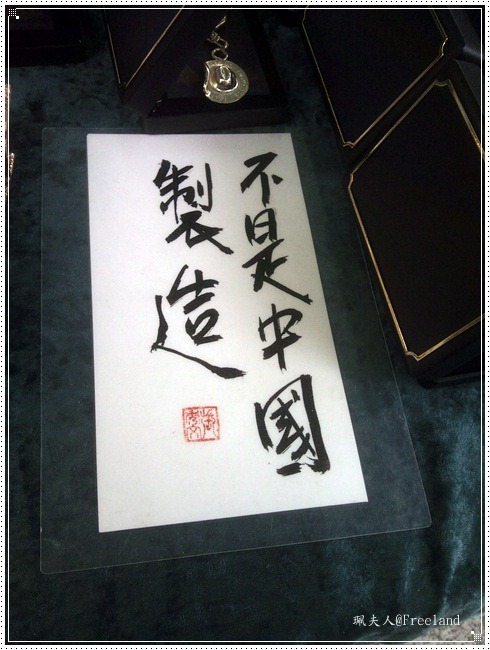 不是中國
製造
珮夫人@Freeland